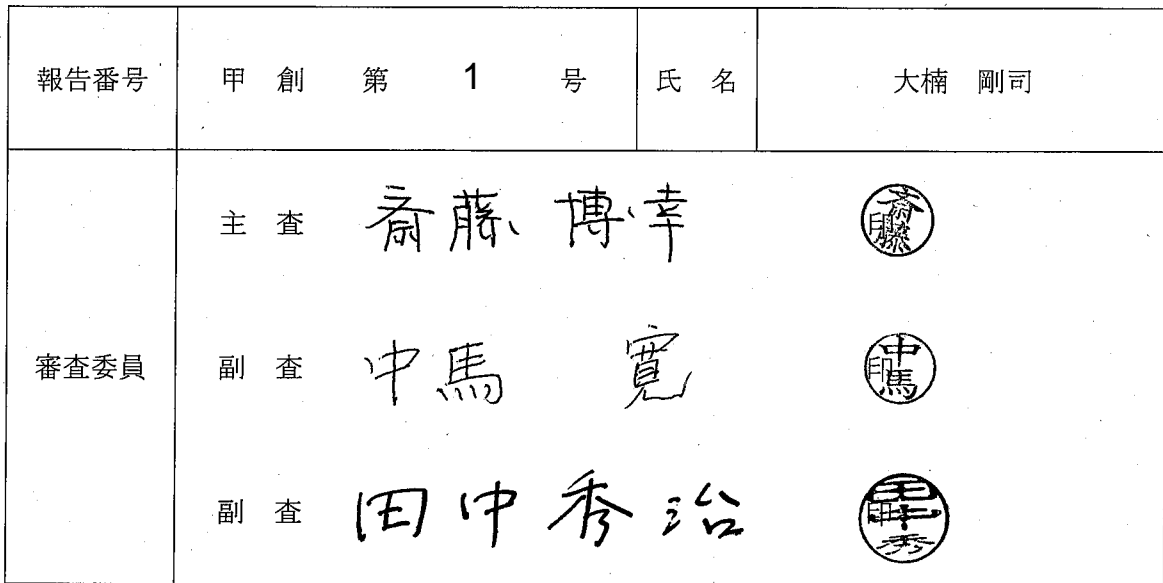 報告番号 甲 創 第 1 号 氏 名 大楠 剛司
審査委員
主 査 斎藤 博幸 斎藤印
副 査 中馬 寛 中馬印
副 査 田中秀治